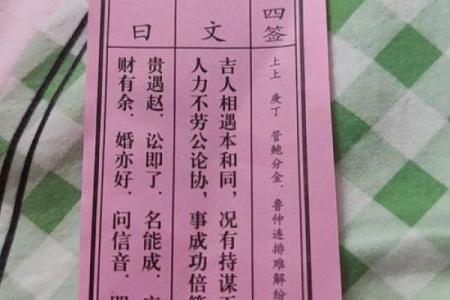 四签
上上 庚丁 管鲍分金.鲁仲连排难解纷
文
吉人相遇本和同，况有持谋
人力不劳公论协，事成功倍
曰
贵遇赵.讼即了.名能成.
财有余.婚亦好.问信音.